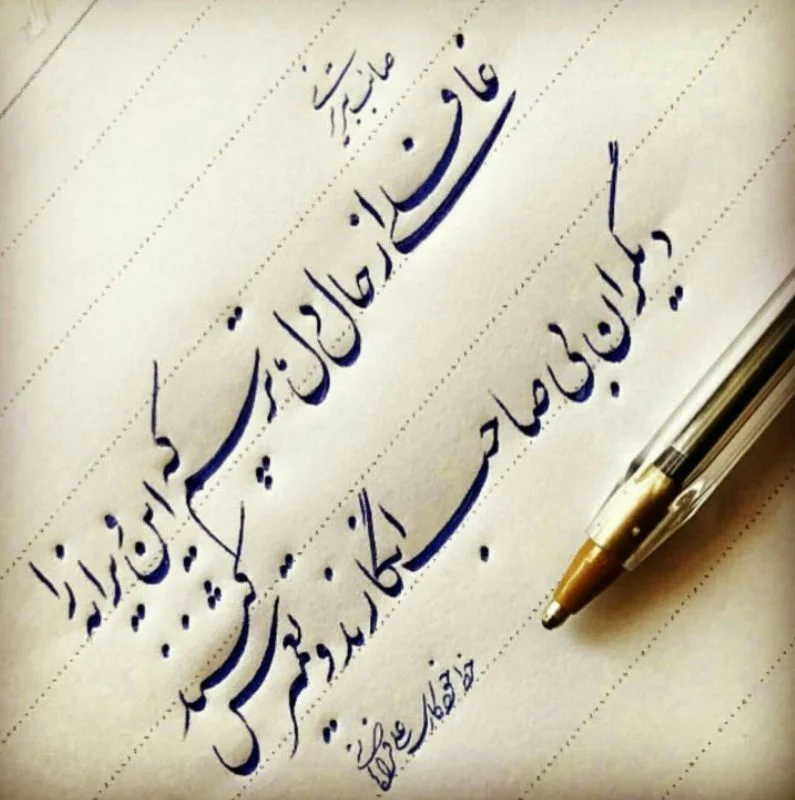 صائب تبریزی
غافلی از حال دل ترسم که این ویرانه را
دیگران بی صاحب انگارند و تعمیرش کنند